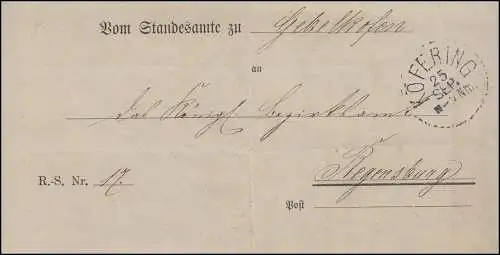 Vom Standesamte zu Gebelkofen
KÖFERING
25
SEP.
an
das Königl Bezirksamt
Regensburg
R.-S. Nr. 17.
Post